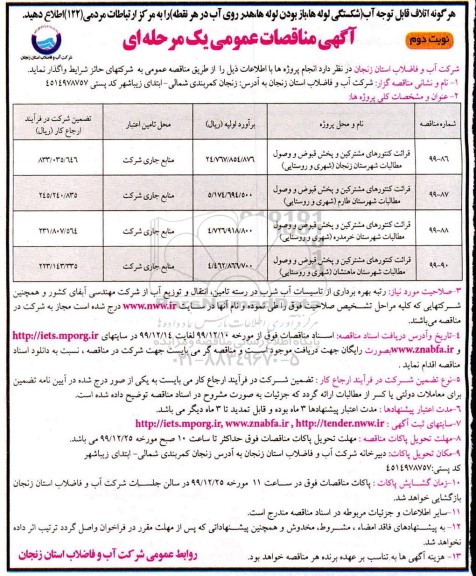 هرگونه اتلاف قابل توجه آب(شکستگی لوله ها،باز بودن لوله ها،هدر روی آب در هر نقطه)را به مرکز ارتباطات مردمی(۱۲۲)اطلاع دهید.
آگهی مناقصات عمومی یک مرحله ای
نوبت دوم
شرکت آب و فاضلاب استان زنجان
شرکت آب و فاضلاب استان زنجان در نظر دارد انجام پروژه ها با اطلاعات ذیل را از طریق مناقصه عمومی به شرکتهای حائز شرایط واگذار نماید.
۱- نام و نشانی مناقصه گزار: شرکت آب و فاضلاب استان زنجان به آدرس: زنجان کمربندی شمالی-ابتدای زیباشهر کد پستی ۴۵۱۴۹۷۸۷۵۷
۲- عنوان و مشخصات کلی پروژه ها:
شماره مناقصه | نام و محل پروژه | برآورد اولیه (ریال) | محل تامین اعتبار | تضمین شرکت در فرآیند ارجاع کار (ریال)
۹۹-۸۶ | قرائت کنتورهای مشترکین و پخش قبوض و وصول مطالبات شهرستان زنجان (شهری و روستایی) | ۲۴/۷۶۷/۸۵۴/۸۷۶ | منابع جاری شرکت | ۸۳۳/۰۳۵/۶۴۶
۹۹-۸۷ | قرائت کنتورهای مشترکین و پخش قبوض و وصول مطالبات شهرستان طارم (شهری و روستایی) | ۵/۱۷۴/۶۹۴/۵۰۰ | منابع جاری شرکت | ۲۴۵/۲۴۰/۸۳۵
۹۹-۸۸ | قرائت کنتورهای مشترکین و پخش قبوض و وصول مطالبات شهرستان خرمدره (شهری و روستایی) | ۴/۷۲۶/۹۱۸/۸۰۰ | منابع جاری شرکت | ۲۳۱/۸۰۷/۵۶۴
۹۹-۹۰ | قرائت کنتورهای مشترکین و پخش قبوض و وصول مطالبات شهرستان ماهنشان (شهری و روستایی) | ۴/۴۶۲/۸۶۶/۷۰۰ | منابع جاری شرکت | ۲۲۳/۱۴۳/۳۳۵
۳- صلاحیت مورد نیاز: رتبه بهره برداری از تاسیسات آب شرب در رسته تامین، انتقال و توزیع آب از شرکت مهندسی آبفای کشور و همچنین
شرکتهایی که کلیه مراحل تشخیص صلاحیت فوق را طی نموده و نام آنها در سایت www.nww.ir درج شده است مجاز به شرکت در
مناقصه می‌باشند.
۴- تاریخ وآدرس دریافت اسناد مناقصه: اسناد مناقصات فوق از مورخه ۹۹/۱۲/۱۰ لغایت ۹۹/۱۲/۱۴ در سایتهای http://iets.mporg.ir
و www.znabfa.ir بصورت رایگان جهت دریافت موجود است و مناقصه گر می بایست جهت شرکت در مناقصه ، نسبت به دانلود اسناد
مناقصه اقدام نماید .
۵- نوع تضمین شرکت در فرآیند ارجاع کار : تضمین شرکت در فرآیند ارجاع کار می بایست به یکی از صور درج شده در آیین نامه تضمین
برای معاملات دولتی یا کسر از مطالبات ارائه گردد که جزئیات به صورت مشروح در اسناد مناقصه توضیح داده شده است.
۶- مدت اعتبار پیشنهادها : مدت اعتبار پیشنهادها ۳ ماه بوده و قابل تمدید تا ۳ ماه دیگر می باشد.
۷- سایتهای ثبت آگهی : http://iets.mporg.ir, www.znabfa.ir , http://tender.nww.ir
۸- مهلت تحویل پاکات مناقصه : مهلت تحویل پاکات مناقصات فوق حداکثر تا ساعت ۱۰ صبح مورخه ۹۹/۱۲/۲۵ می باشد.
۹- مکان تحویل پاکات: دبیرخانه شرکت آب و فاضلاب استان زنجان به آدرس زنجان کمربندی شمالی- ابتدای زیباشهر
کد پستی:۴۵۱۴۹۷۸۷۵۷
۱۰- زمان گشایش پاکات : پاکات مناقصات فوق در ساعت ۱۱ مورخه ۹۹/۱۲/۲۵ در سالن جلسات شرکت آب و فاضلاب استان زنجان
بازگشایی خواهد شد.
۱۱- سایر اطلاعات و جزئیات مربوطه در اسناد مناقصه مندرج است.
۱۲- به پیشنهادهای فاقد امضاء ، مشروط، مخدوش و همچنین پیشنهاداتی که پس از مهلت مقرر در فراخوان واصل گردد ترتیب اثر داده
نخواهد شد.
۱۳- هزینه آگهی ها به تناسب بر عهده برنده هر مناقصه خواهد بود.
روابط عمومی شرکت آب و فاضلاب استان زنجان
۰۲۱-۸۸۳۴۹۶۷۰-۵